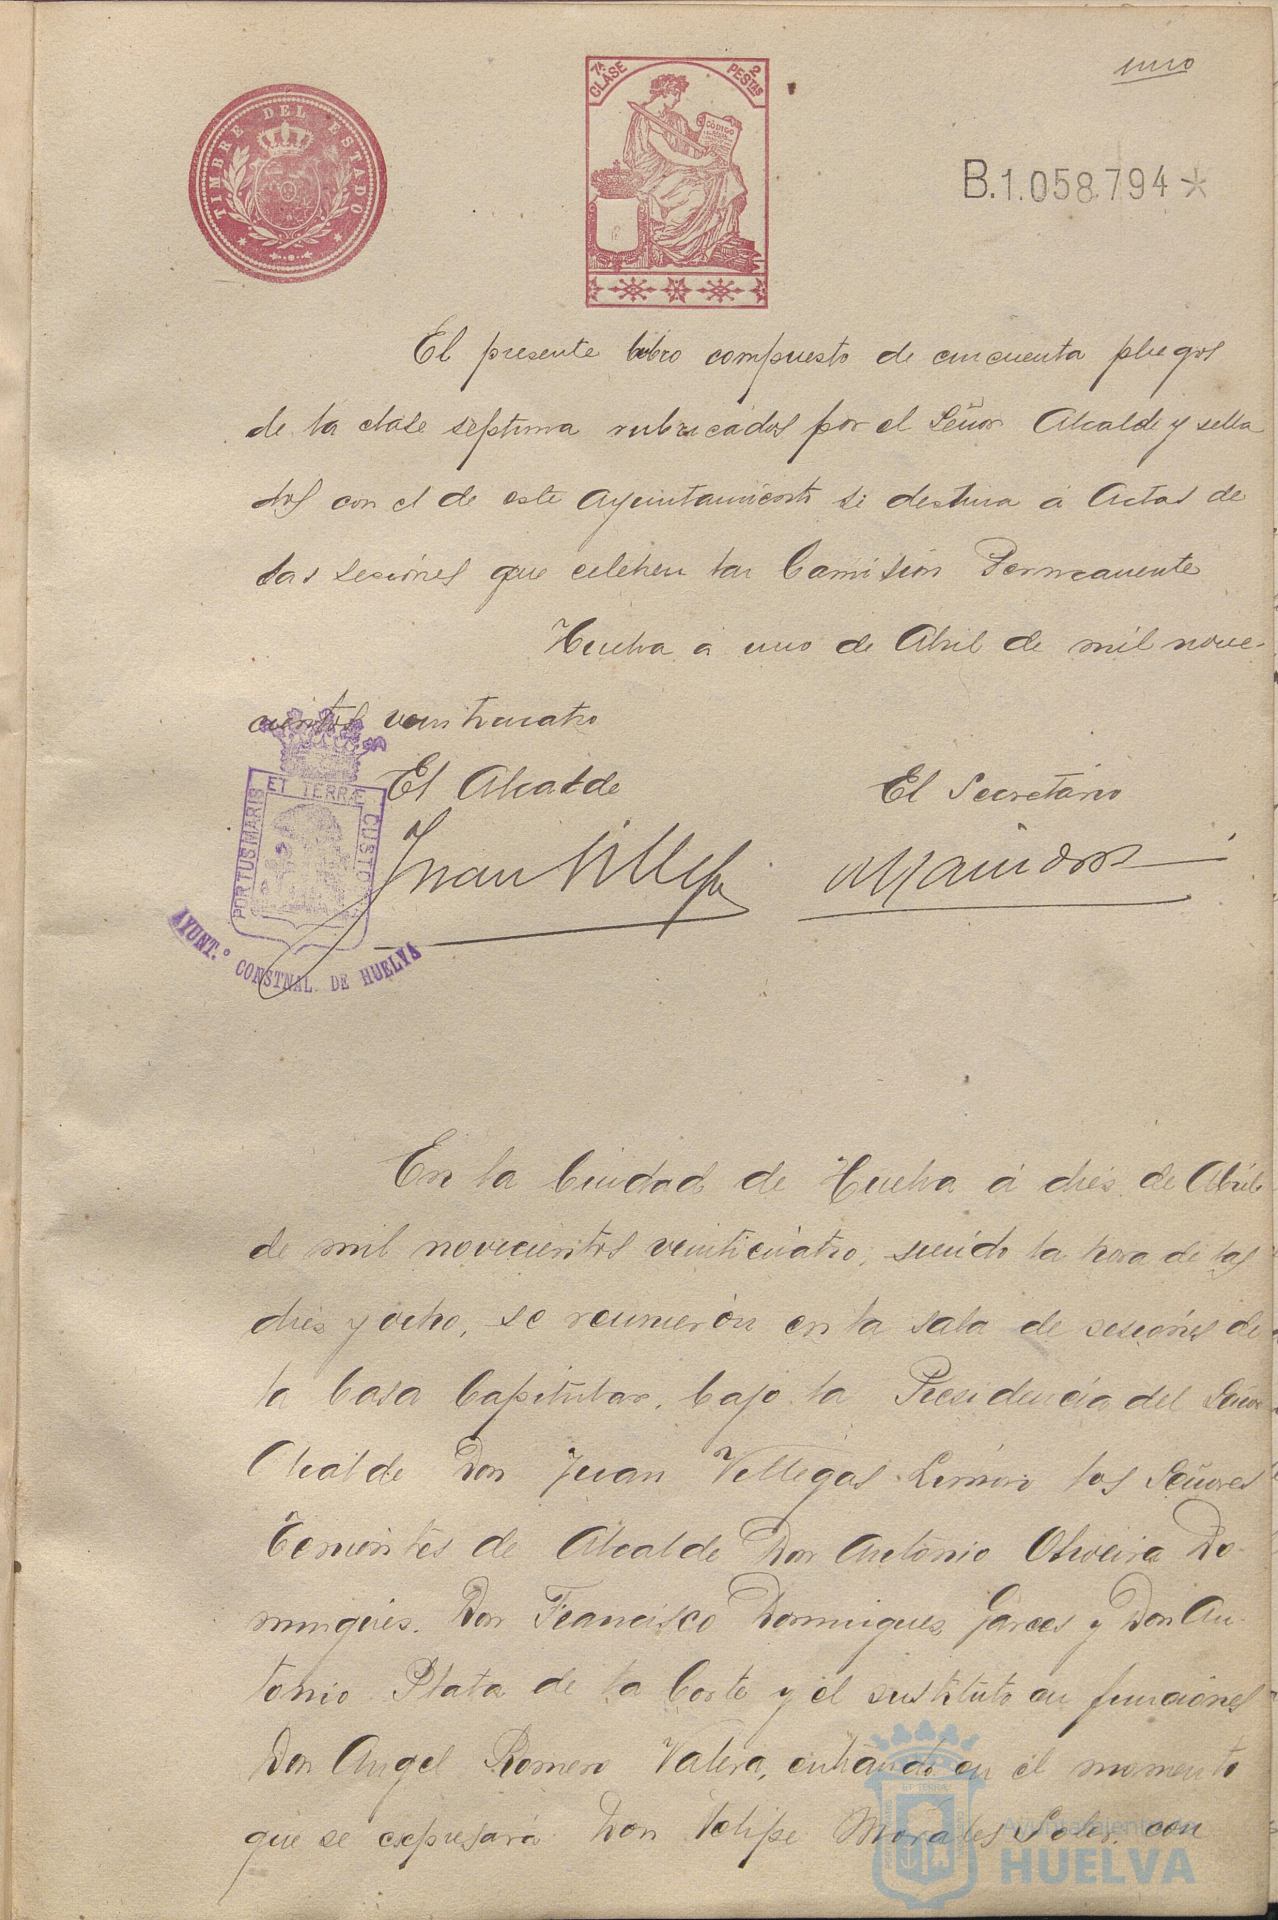 uno
TIMBRE DEL ESTADO
7ª CLASE
2 PESTAS
CODIGO
B.1.058.794*
El presente libro compuesto de cincuenta pliegos
de la clase septima rubricados por el Señor Alcalde y sella
dos con el de este Ayuntamiento se destina á Actas de
las sesiones que celebre la Comisión Permanente
Huelva a uno de Abril de mil nove-
cientos veinticuatro
El Alcalde
El Secretario
Juan Villegas
PORTUS MARIS ET TERRÆ CUSTO
AYUNT.º CONSTNAL. DE HUELVA
En la Ciudad de Huelva á diés de Abril
de mil novecientos veinticuatro, siendo la hora de las
dies y ocho, se reunieron en la sala de sesiones de
la Casa Capitular, bajo la Presidencia del Señor
Alcalde Don Juan Villegas Limón los Señores
Tenientes de Alcalde Don Antonio Oliveira Do-
mingues. Don Francisco Dominguez Garces y Don An-
tonio Plata de la Corte y el sustituto en funciones
Don Angel Romero Valera, entrando en el momento
que se expresará Don Felipe Morales Soler, con
Ayuntamiento
HUELVA